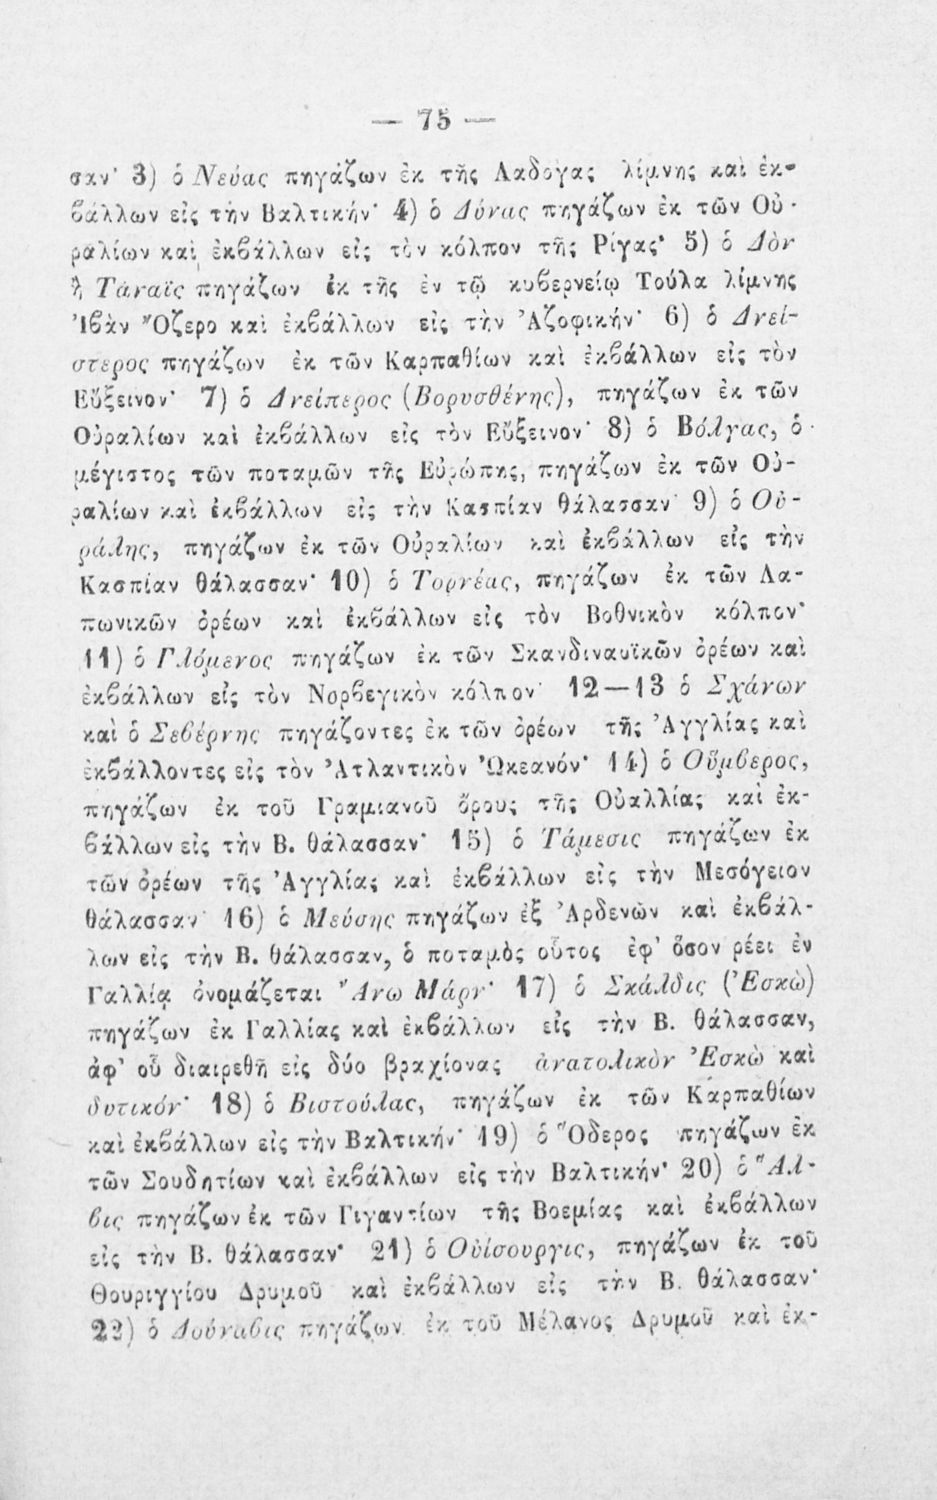 — 75 —
σαν· 3) ὁ Νεύας πηγάζων ἐκ τῆς Λαδογας λίμνης καὶ ἐκ-
βάλλων εἰς τὴν Βαλτικήν· 4) ὁ Δύνας πηγάζων ἐκ τῶν Οὐ-
ραλίων καὶ ἐκβάλλων εἰς τὸν κόλπον τῆς Ρίγας· 5) ὁ Δὸν
ἢ Τάναϊς πηγάζων ἐκ τῆς ἐν τῷ κυβερνείῳ Τούλα λίμνης
Ἰβὰν Ὄζερο καὶ ἐκβάλλων εἰς τὴν Ἀζοφικήν· 6) ὁ Δνεί-
στερος πηγάζων ἐκ τῶν Καρπαθίων καὶ ἐκβάλλων εἰς τὸν
Εὔξεινον· 7) ὁ Δνείπερος (Βορυσθένης), πηγάζων ἐκ τῶν
Οὐραλίων καὶ ἐκβάλλων εἰς τὸν Εὔξεινον· 8) ὁ Βόλγας, ὁ
μέγιστος τῶν ποταμῶν τῆς Εὐρώπης, πηγάζων ἐκ τῶν Οὐ-
ραλίων καὶ ἐκβάλλων εἰς τὴν Κασπίαν θάλασσαν· 9) ὁ Οὐ-
ράλης, πηγάζων ἐκ τῶν Οὐραλίων καὶ ἐκβάλλων εἰς τὴν
Κασπίαν θάλασσαν· 10) ὁ Τορνέας, πηγάζων ἐκ τῶν Λα-
πωνικῶν ὀρέων καὶ ἐκβάλλων εἰς τὸν Βοθνικὸν κόλπον·
11) ὁ Γλόμενος πηγάζων ἐκ τῶν Σκανδιναυϊκῶν ὀρέων καὶ
ἐκβάλλων εἰς τὸν Νορβεγικὸν κόλπον· 12—13 ὁ Σχάνων
καὶ ὁ Σεβέρνης πηγάζοντες ἐκ τῶν ὀρέων τῆς Ἀγγλίας καὶ
ἐκβάλλοντες εἰς τὸν Ἀτλαντικὸν Ὠκεανόν· 14) ὁ Οὔμβερος,
πηγάζων ἐκ τοῦ Γραμιανοῦ ὄρους τῆς Οὐαλλίας καὶ ἐκ-
βάλλων εἰς τὴν Β. θάλασσαν· 15) ὁ Τάμεσις πηγάζων ἐκ
τῶν ὀρέων τῆς Ἀγγλίας καὶ ἐκβάλλων εἰς τὴν Μεσόγειον
θάλασσαν· 16) ὁ Μεύσης πηγάζων ἐξ Ἀρδενῶν καὶ ἐκβάλ-
λων εἰς τὴν Β. θάλασσαν, ὁ ποταμὸς οὗτος ἐφ' ὅσον ρέει ἐν
Γαλλίᾳ ὀνομάζεται Ἄνω Μάρν· 17) ὁ Σκάλδις (Ἐσκὼ)
πηγάζων ἐκ Γαλλίας καὶ ἐκβάλλων εἰς τὴν Β. θάλασσαν,
ἀφ' οὗ διαιρεθῆ εἰς δύο βραχίονας ἀνατολικὸν Ἐσκὼ καὶ
δυτικόν· 18) ὁ Βιστούλας, πηγάζων ἐκ τῶν Καρπαθίων
καὶ ἐκβάλλων εἰς τὴν Βαλτικήν· 19) ὁ Ὄδερος πηγάζων ἐκ
τῶν Σουδητίων καὶ ἐκβάλλων εἰς τὴν Βαλτικήν· 20) ὁ Ἄλ-
βις πηγάζων ἐκ τῶν Γιγαντίων τῆς Βοεμίας καὶ ἐκβάλλων
εἰς τὴν Β. θάλασσαν· 21) ὁ Οὐίσουργις, πηγάζων ἐκ τοῦ
Θουριγγίου Δρυμοῦ καὶ ἐκβάλλων εἰς τὴν Β. θάλασσαν·
22) ὁ Δούναβις πηγάζων ἐκ τοῦ Μέλανος Δρυμοῦ καὶ ἐκ-